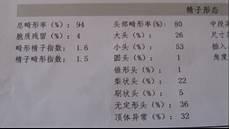 精子形态
总畸形率(%): 94
胞质残留(%): 4
畸形精子指数: 1.6
精子畸形指数: 1.5
头部畸形率(%): 80
大头(%): 26
小头(%): 53
圆头(%): 1
锥形头(%):
梨状头(%): 22
凋状头(%): 5
无定形头(%): 36
顶体异常(%): 32
中段
尺寸
插
角度